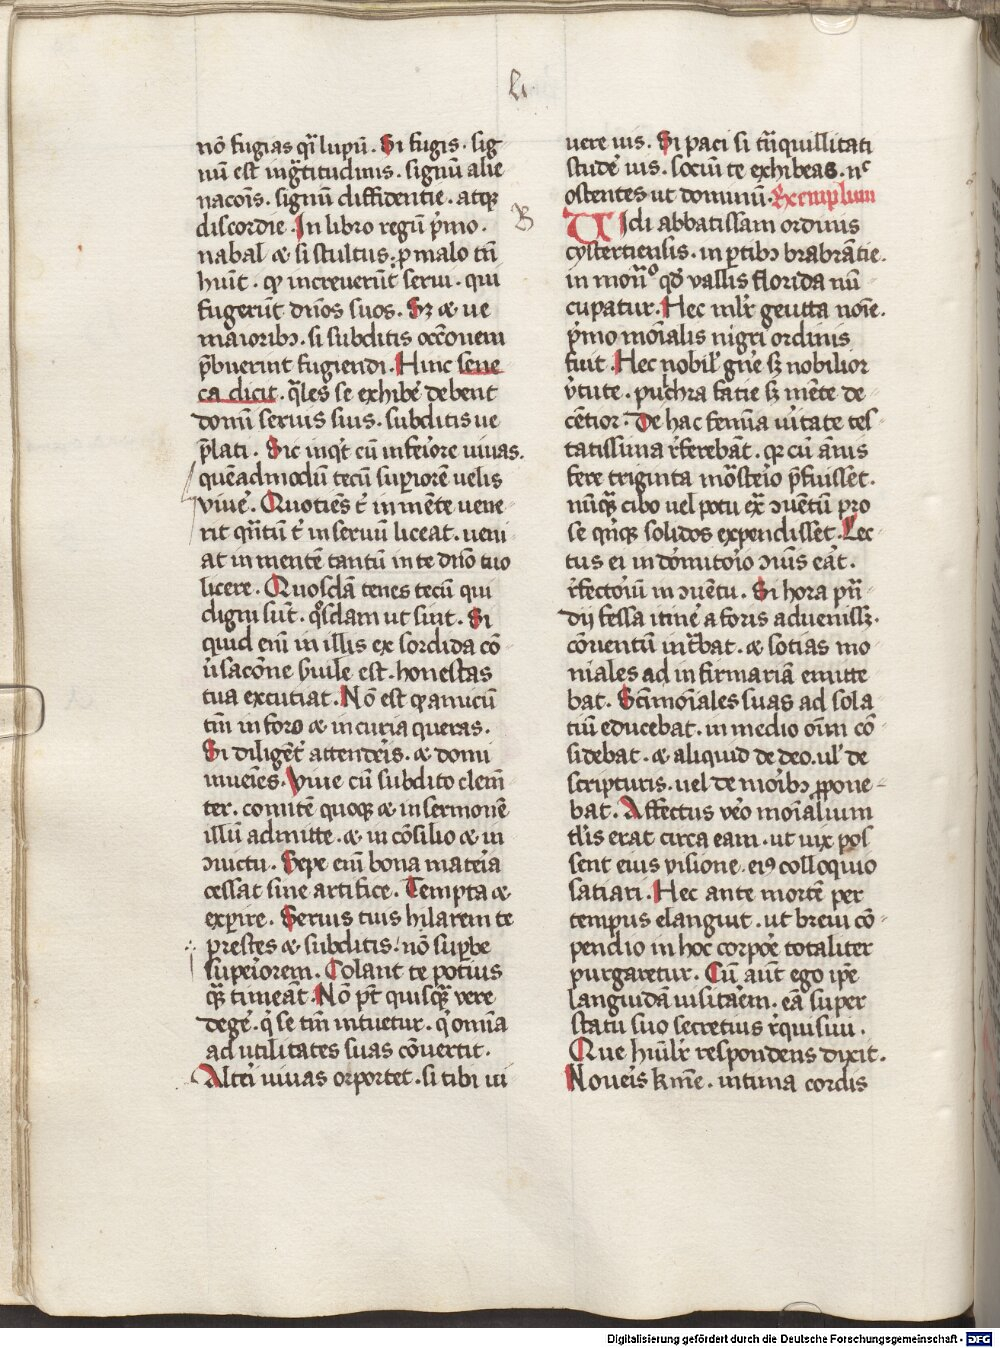 Li
nō fugias qr̄ lupū. Si fugis. sig
nū est ingͣtitudinis. signū alie
nacōis. signū diffidentie. atqꝫ
discordie. In libro regū pͥmo.
nabal & si stultus. ꝓ malo tn̄
hūit. ꝙ increuerūt serui. qui
fugerūt dn̄os suos. Sꝫ & ue
maioribꝫ. si subditis occōnem
p̄buerint fugiendi. Hinc sene
ca dicit. q̄les se exhibe' debent
domī seruis suis. subditis ue
p̄lati. Sic inqͥt cū inferiore uiuas.
quēadmodū tecū supiorē uelis
viue'. Quotiēs t' in mēte uene
rit qn̄tū t' in seruū liceat. ueni
at in mentē tantū in te dn̄o tuo
licere. Quosdā tenes tecū qui
digni sūt. qͦsdam ut sint. Si
quid eni in illis ex sordida cō
u'sacōne s'uile est. honestas
tua excutiat. Nō est ꝙ amicū
tm̄ in foro & in curia queras.
Si diligēt' attenderis. & domi
inueīes. Viue cū subdito clem̄
ter. comitē quoqꝫ & in sermonē
illū admitte. & in cōsilio & in
ɔuictu. Sepe eni bona materia
cessat sine artifice. Tempta &
expire. Seruis tuis hilarem te
prestes & subditis. nō supbe
superiorem. Colant te potius
qͣꝫ timeāt. Nō pt̄ quisqͣꝫ uere
dege'. qͥ se tm̄ intuetur. qͥ omīa
ad utilitates suas cōuertit.
Alteri uiuas orportet. si tibi ui
uere uis. Si paci si tn̄quillitati
stude' uis. sociū te exhibeas. nͨ
ostentes ut dominū. Exemplum
B
Uidi abbatissam ordinis
cystertiensis. in ꝑtibꝫ brabrātie.
in mon̄ͦ qd' vallis florida nū
cupatur. Hec ml'r geutta noīe.
pͥmo moīalis nigri ordinis
fuit. Hec nobil' gn̄e sꝫ nobilior
v'tute. pulchra facie sꝫ mēte de
cētior. De hac femīa u'itate tes
tatissima r'ferebāt. qꝛ cū ānis
fere triginta mōsterio p̄fuisset.
nūqͣꝫ cibo uel potu ext̄ ɔuētū pro
se qͥnqꝫ solidos expendisset. Lec
tus ei in dormitorio ɔis eāt.
r'fectoriū in ɔuētu. Si hora pn̄
dij fessa itine' a foris aduenissꝫ.
cōuentū int̄bat. & sotias mo
niales ad infirmariā emitte
bat. Scīmoīales suas ad sola
tiū educebat. in medio oīm cō
sidebat. & aliquid de deo. ul' de
scripturis. uel de moribꝫ ꝓpone
bat. Affectus vero moīalium
tl'is erat circa eam. ut uix pos
sent eius visione. eiꝯ colloquio
satiari. Hec ante mortē per
tempus elanguit. ut breui cō
pendio in hoc corpoe' totaliter
purgaretur. Cū aūt ego ip̄e
languidā uisitarem. eā super
statu suo secretius r'quisiui.
Que hūil'r respondens dixit.
Noueris k'me. intima cordis
Digitalisierung gefördert durch die Deutsche Forschungsgemeinschaft - DFG